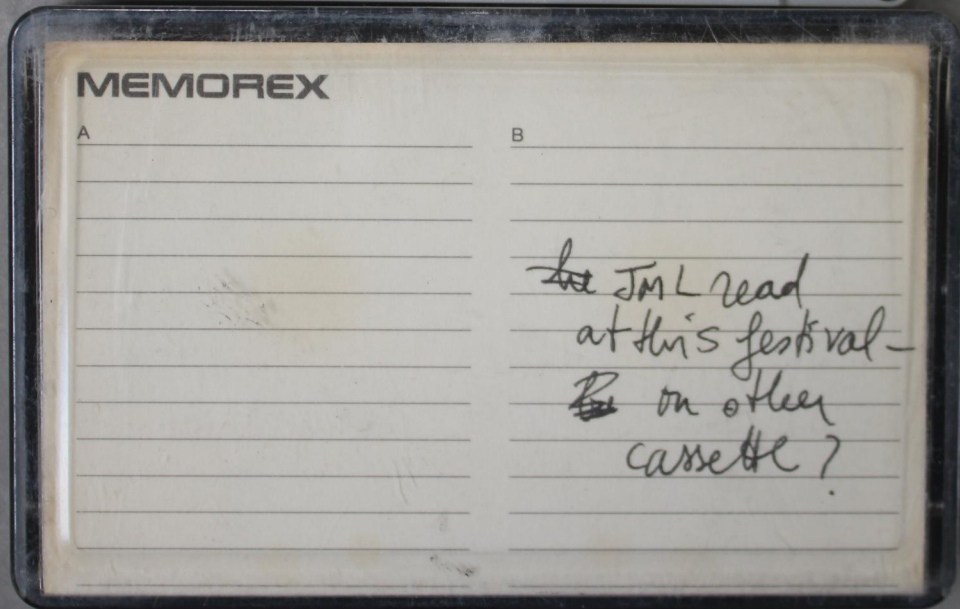 MEMOREX
A
B
JML read
at this festival –
on other
cassette?